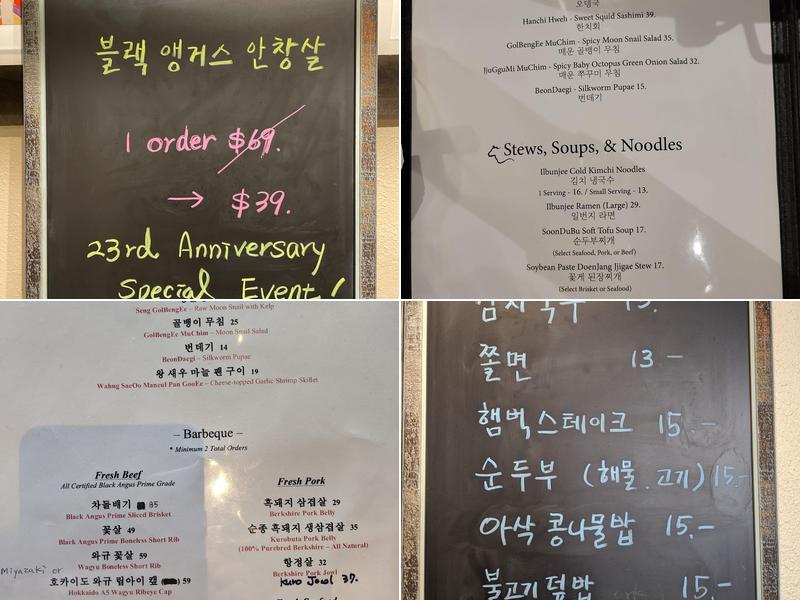 블랙 앵거스 안창살
1 order $69.
→ $39.
23rd Anniversary
Special Event!
오뎅국
Hanchi Hweh - Sweet Squid Sashimi 39.
한치회
GolBengEe MuChim - Spicy Moon Snail Salad 35.
매운 골뱅이 무침
JjuGguMi MuChim - Spicy Baby Octopus Green Onion Salad 32.
매운 쭈꾸미 무침
BeonDaegi - Silkworm Pupae 15.
번데기
Stews, Soups, & Noodles
Ilbunjee Cold Kimchi Noodles
김치 냉국수
1 Serving - 16. / Small Serving - 13.
Ilbunjee Ramen (Large) 29.
일번지 라면
SoonDuBu Soft Tofu Soup 17.
순두부찌개
(Select Seafood, Pork, or Beef)
Soybean Paste DoenJang Jjigae Stew 17.
꽃게 된장찌개
(Select Brisket or Seafood)
Seng GolBengEe – Raw Moon Snail with Kelp
골뱅이 무침 25
GolBengEe MuChim – Moon Snail Salad
번데기 14
BeonDaegi – Silkworm Pupae
왕 새우 마늘 팬 구이 19
Wahng SaeOo Maneul Pan GooEe – Cheese-topped Garlic Shrimp Skillet
– Barbeque –
* Minimum 2 Total Orders
Fresh Beef
All Certified Black Angus Prime Grade
차돌배기 35
Black Angus Prime Sliced Brisket
꽃살 49
Black Angus Prime Boneless Short Rib
와규 꽃살 59
Wagyu Boneless Short Rib
Miyazaki or
호카이도 와규 립아이 캡 59
Hokkaido A5 Wagyu Ribeye Cap
Fresh Pork
흑돼지 삼겹살 29
Berkshire Pork Belly
순종 흑돼지 생삼겹살 35
Kurobuta Pork Belly
(100% Purebred Berkshire – All Natural)
항정살 32
Berkshire Pork Jowl
Kuro Jowl 37.
쫄면 13 -
햄벅스테이크 15.-
순두부 (해물. 고기) 15.-
아삭 콩나물밥 15.-
불고기 덮밥 15.-